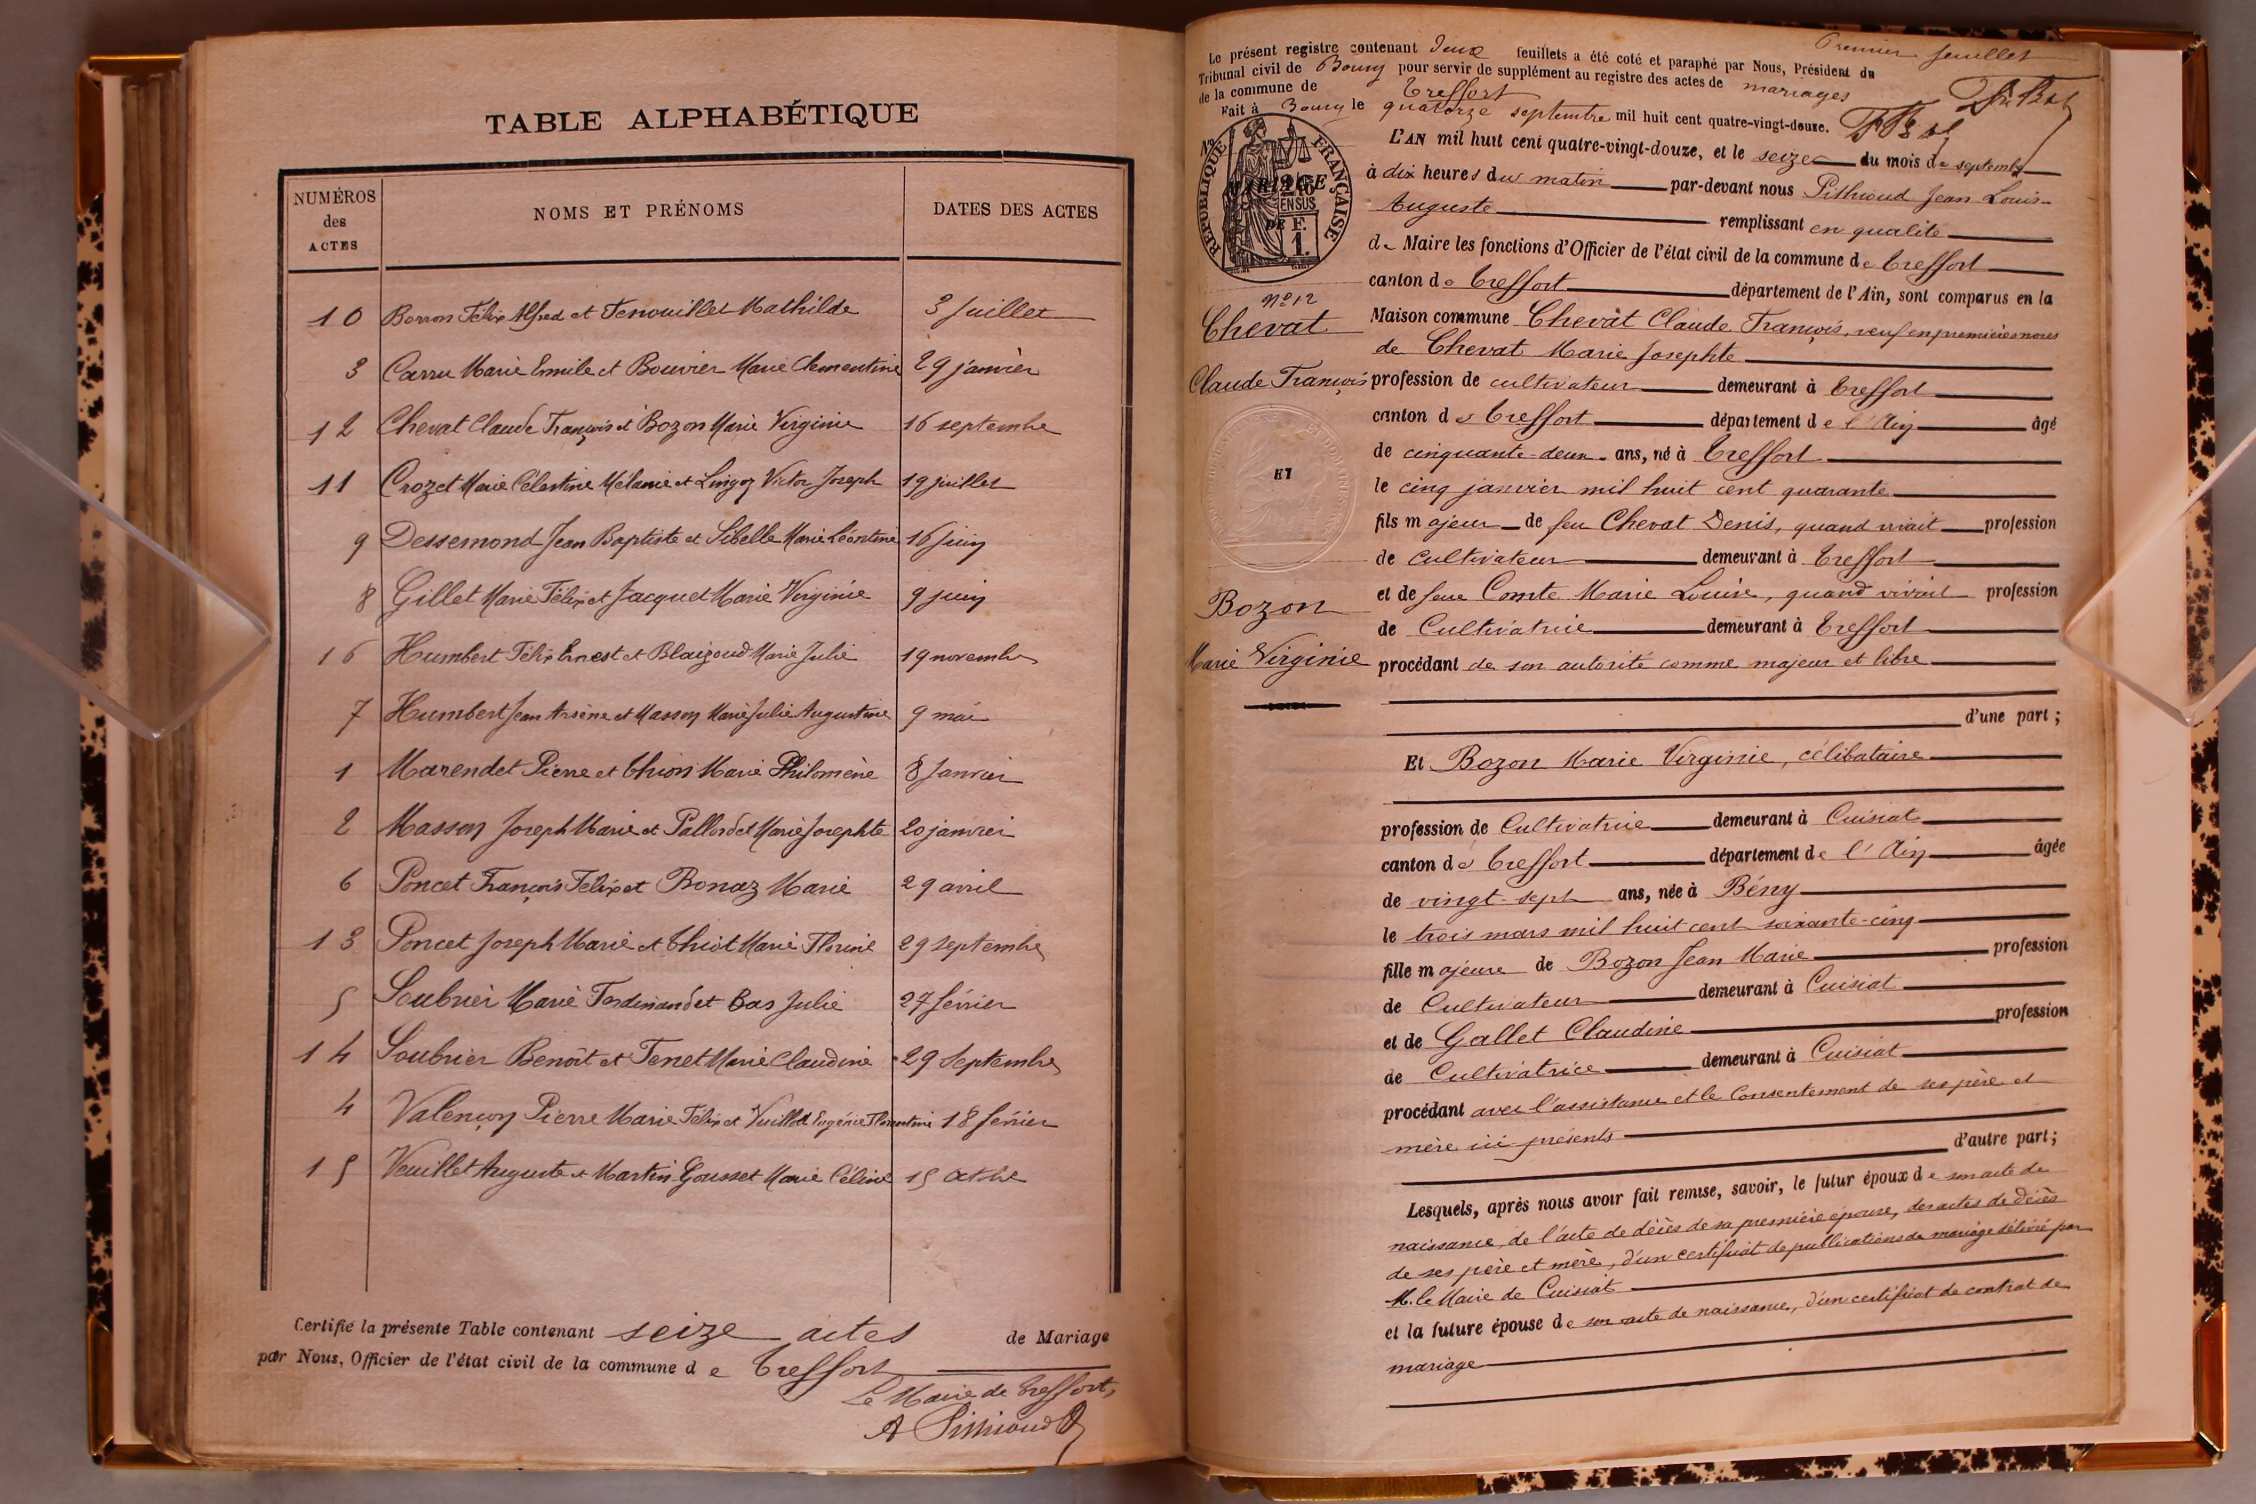 TABLE ALPHABÉTIQUE
NUMÉROS des ACTES NOMS ET PRÉNOMS DATES DES ACTES
10 Borron Félix Alfred et Fenouillet Mathilde 3 Juillet
3 Carru Marie Emile et Bouvier Marie Clementine 29 janvier
12 Chevat Claude François et Bozon Marie Virginie 16 septembre
11 Crozet Marie Célestine Mélanie et Lingoz Victor Joseph 19 juillet
9 Dessemond Jean Baptiste et Sibelle Marie Léontine 16 juin
8 Gillet Marie Félix et Jacquet Marie Virginie 9 juin
16 Humbert Félix Ernest et Blaizoud Marie Julie 19 novembre
7 Humbert Jean Arsène et Masson Marie Julie Augustine 9 mai
1 Marendet Pierre et Thion Marie Philomène 8 Janvier
2 Masson Joseph Marie et Pallordet Marie Josephte 20 janvier
6 Poncet François Félix et Bonaz Marie 29 avril
13 Poncet Joseph Marie et Chiot Marie Florine 29 septembre
5 Soubrier Marie Ferdinand et Bas Julie 27 février
14 Soubrier Benoît et Tenet Marie Claudine 29 Septembre
4 Valençon Pierre Marie Félix et Vuillod Eugénie Florentine 18 février
15 Veuillet Auguste et Martin-Gousset Marie Céline 15 octbre
Certifié la présente Table contenant seize actes de Mariage
par Nous, Officier de l'état civil de la commune de Treffort
Le Maire de Treffort,
A Pithioud
Premier feuillet
Le présent registre contenant deux feuillets a été coté et paraphé par Nous, Président du
Tribunal civil de Bourg pour servir de supplément au registre des actes de mariages
de la commune de Treffort
Fait à Bourg le quatorze septembre mil huit cent quatre-vingt-douze.
No
MARIAGE
DE
RÉPUBLIQUE FRANÇAISE
2/10 EN SUS
1 F.
L'AN mil huit cent quatre-vingt-douze, et le seize du mois de septembre
à dix heures du matin par-devant nous Pithioud Jean Louis
Auguste remplissant en qualité
de Maire les fonctions d'Officier de l'état civil de la commune de Treffort
canton de Treffort département de l'Ain, sont comparus en la
No 12
Chevat
Maison commune Chevat Claude François, veuf en premières noces
de Chevat Marie Josephte
Claude François
profession de cultivateur demeurant à Treffort
canton de Treffort département de l'Ain âgé
de cinquante-deux ans, né à Treffort
ET
le cinq janvier mil huit cent quarante
fils majeur de feu Chevat Denis, quand vivait profession
de cultivateur demeurant à Treffort
et de feue Comte Marie Louise, quand vivait profession
Bozon
de Cultivatrice demeurant à Treffort
Marie Virginie
procédant de son autorité comme majeur et libre
d'une part ;
Et Bozon Marie Virginie, célibataire
profession de Cultivatrice demeurant à Cuisiat
canton de Treffort département de l'Ain âgée
de vingt-sept ans, née à Bény
le trois mars mil huit cent soixante-cinq
fille majeure de Bozon Jean Marie profession
de Cultivateur demeurant à Cuisiat
et de Gallet Claudine profession
de Cultivatrice demeurant à Cuisiat
procédant avec l'assistance et le consentement de ses père et
mère ici présents
d'autre part ;
Lesquels, après nous avoir fait remise, savoir, le futur époux de son acte de
naissance, de l'acte de décès de sa première épouse, des actes de décès
de ses père et mère, d'un certificat de publications de mariage délivré par
M. le Maire de Cuisiat
et la future épouse de son acte de naissance, d'un certificat de contrat de
mariage